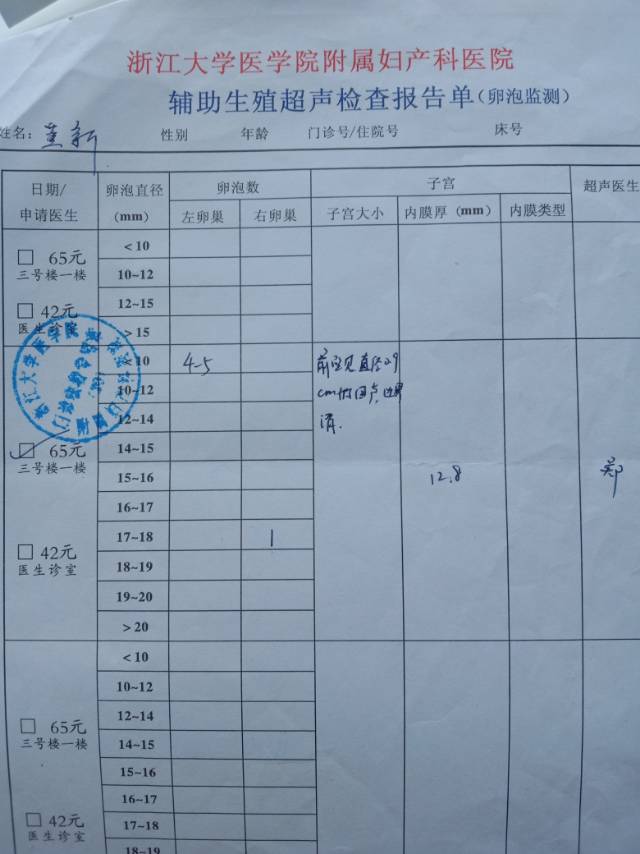 浙江大学医学院附属妇产科医院
辅助生殖超声检查报告单(卵泡监测)
姓名: 性别 年龄 门诊号/住院号 床号
日期/申请医生 卵泡直径(mm) 卵泡数 子宫 超声医生
左卵巢 右卵巢 子宫大小 内膜厚(mm) 内膜类型
□ 65元
三号楼一楼
□ 42元
医生诊室
<10
10~12
12~15
>15
□ 65元
三号楼一楼
□ 42元
医生诊室
<10 4-5
10~12
12~14
14~15
15~16
16~17
17~18 1
18~19
19~20
>20
前壁见直径2.9
cm低回声,边界
清.
12.8
郑
□ 65元
三号楼一楼
□ 42元
医生诊室
<10
10~12
12~14
14~15
15~16
16~17
17~18
18~19